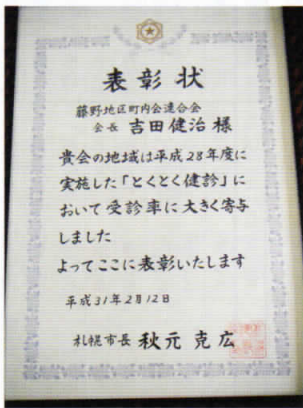 表彰状
藤野地区町内会連合会
会長 吉田健治 様
貴会の地域は平成28年度に
実施した「とくとく健診」に
おいて受診率に大きく寄与
しました
よってここに表彰いたします
平成31年2月12日
札幌市長 秋元克広